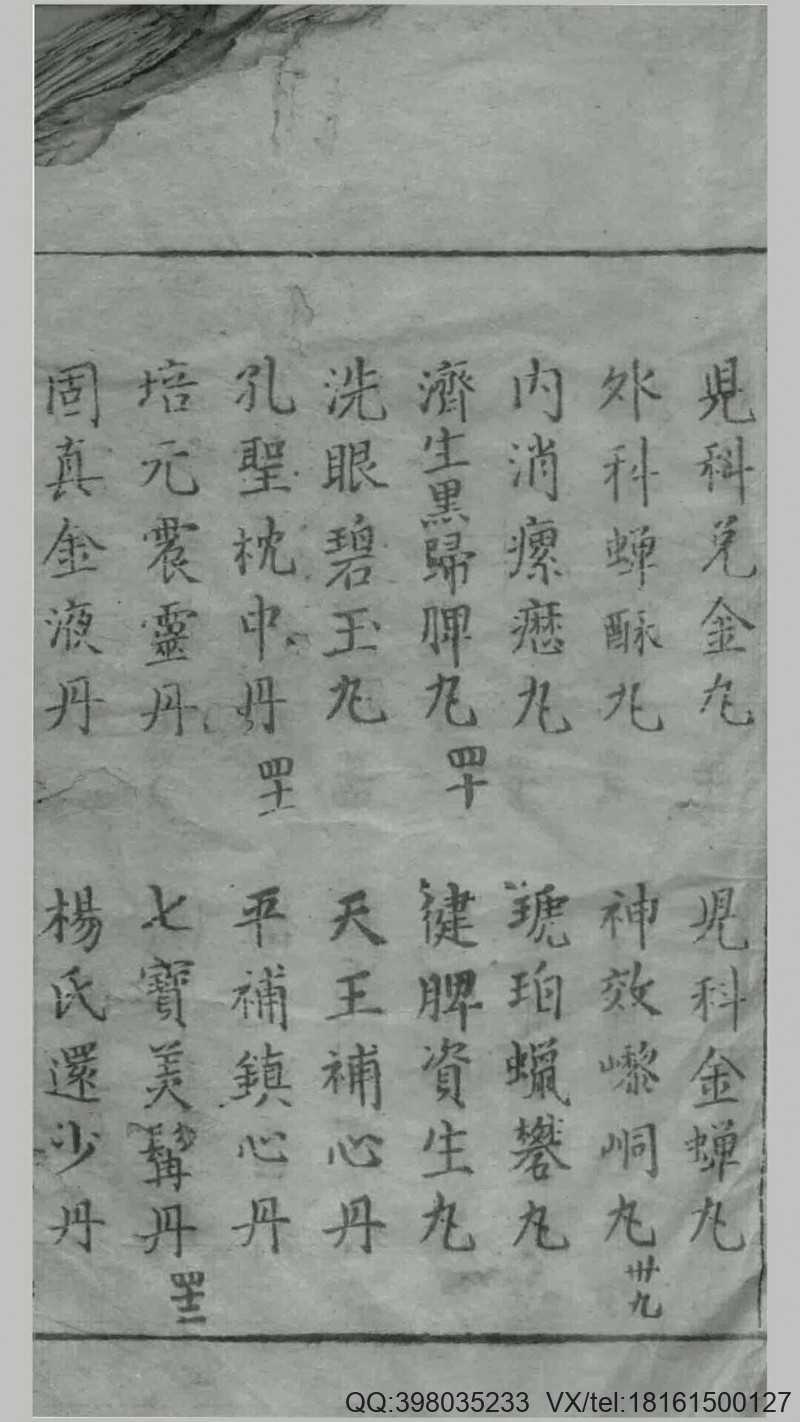 兒科兌金丸
兒科金蟬丸
外科蟬酥丸
神效㠟峒丸
卅九
內消瘰癧丸
琥珀蠟礬丸
濟生黑歸脾丸
四十
健脾資生丸
洗眼碧玉丸
天王補心丹
孔聖枕中丹
四十一
平補鎮心丹
培元震靈丹
七寶美髯丹
四十二
固真金液丹
楊氏還少丹
QQ:398035233 VX/tel:18161500127